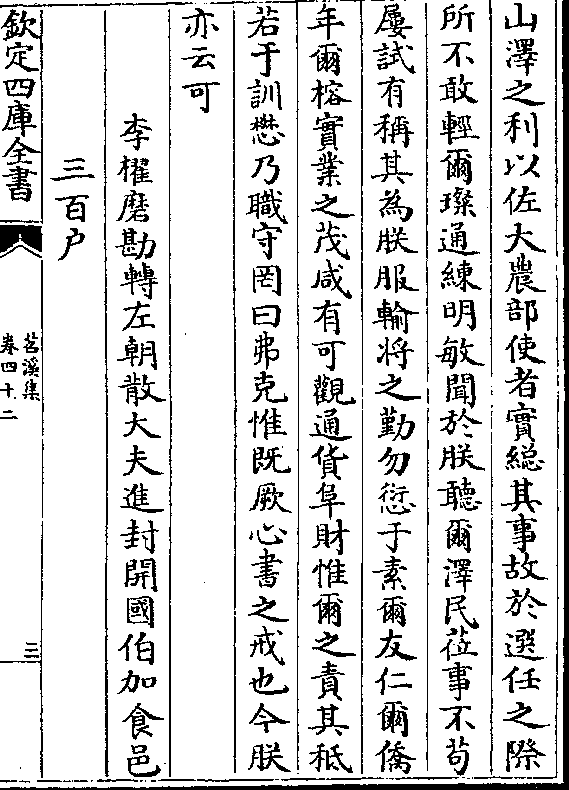 山澤之利以佐大農部使者實総其事故於選任之際
所不敢輕爾璨通練明敏聞於朕聽爾澤民莅事不苟
屢試有稱其為朕服輸將之勤勿愆于素爾友仁爾僑
年爾榕實業之茂咸有可觀通貨阜財惟爾之責其秪
若于訓懋乃職守罔曰弗克惟既厥心書之戒也今朕
亦云可
李櫂磨勘轉左朝散大夫進封開國伯加食邑
三百户
欽定四庫全書
苕溪集
卷四十二
三